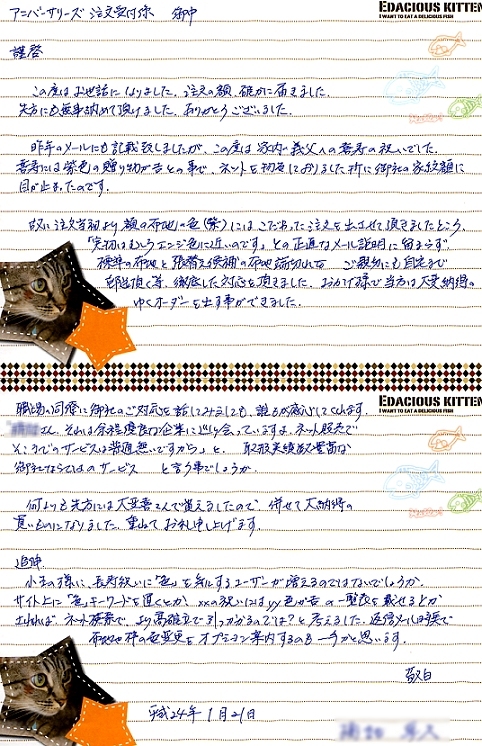 アニバーサリーズ 注文受付係 御中
EDACIOUS KITTEN
I WANT TO EAT A DELICIOUS FISH
謹啓
この度はお世話になりました。注文の額、確かに届きました。
先方にも無事納めて頂けました。ありがとうございました。
昨年のメールにも記載致しましたが、この度は家内の義父への喜寿の祝いでした。
喜寿には紫色の贈り物が吉との事で、ネットを物色しておりました折に御社の家紋額に
目が止まったのです。
故に注文当初より額の布地の色(紫)にはこだわった注文を出させて頂きましたところ、
「実物はむしろエンジ色に近いのです」との正直なメール説明に留まらず、
標準の布地と張替え候補の布地
ご親切にも自宅まで
御送頂く等、徹底した対応を頂きました。おかげ様で当方は大変納得の
ゆくオーダーを出す事ができました。
EDACIOUS KITTEN
I WANT TO EAT A DELICIOUS FISH
職場の同僚に御社のご対応を話してみましても、誰もが感心してくれます。
さん、それは余程優良な企業に巡り会っていますよ。ネット販売で
そこまでのサービスは普通無いですから」と。取扱実績数豊富な
御社ならではのサービス と言う事でしょうか。
何よりも先方には大変喜んで貰えましたので、併せて大納得の
買いものになりました。重ねてお礼申し上げます。
追伸
小生の様に、長寿祝いに「色」を気にするユーザーが増えるのではないでしょうか。
サイト上に「色」キーワードを置くとか、xxの祝いにはyy色が吉の一覧表を載せるとか
すれば、ネット検索で、より高確立で引っかかるのでは?と考えました。返信メール対談で
布地や枠の色変更をオプション案内するのも一手かと思います。
敬白
平成24年1月21日